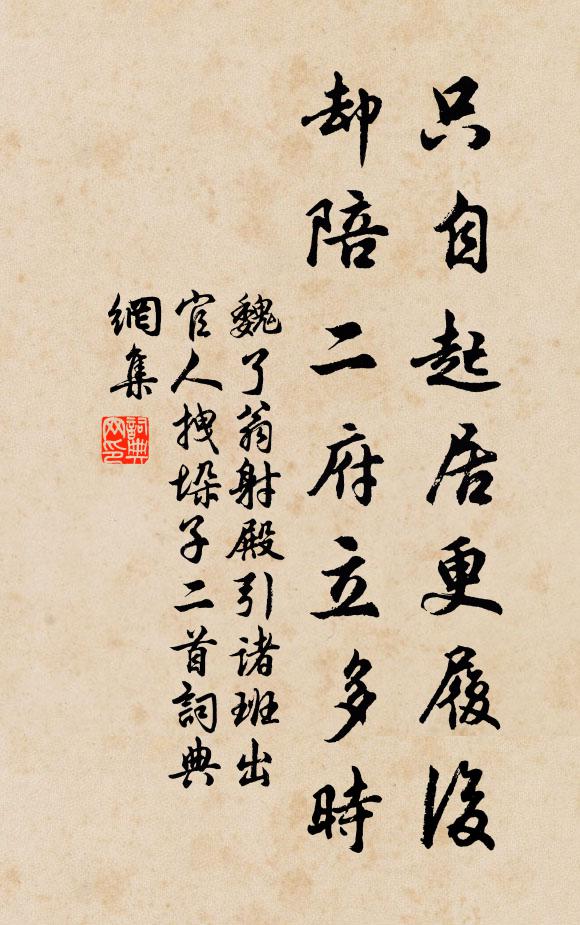 只自起居更履後
却陪二府立多時
魏了翁射殿引诸班出
官人拽垛子二首詞典
網集
詞典
网印